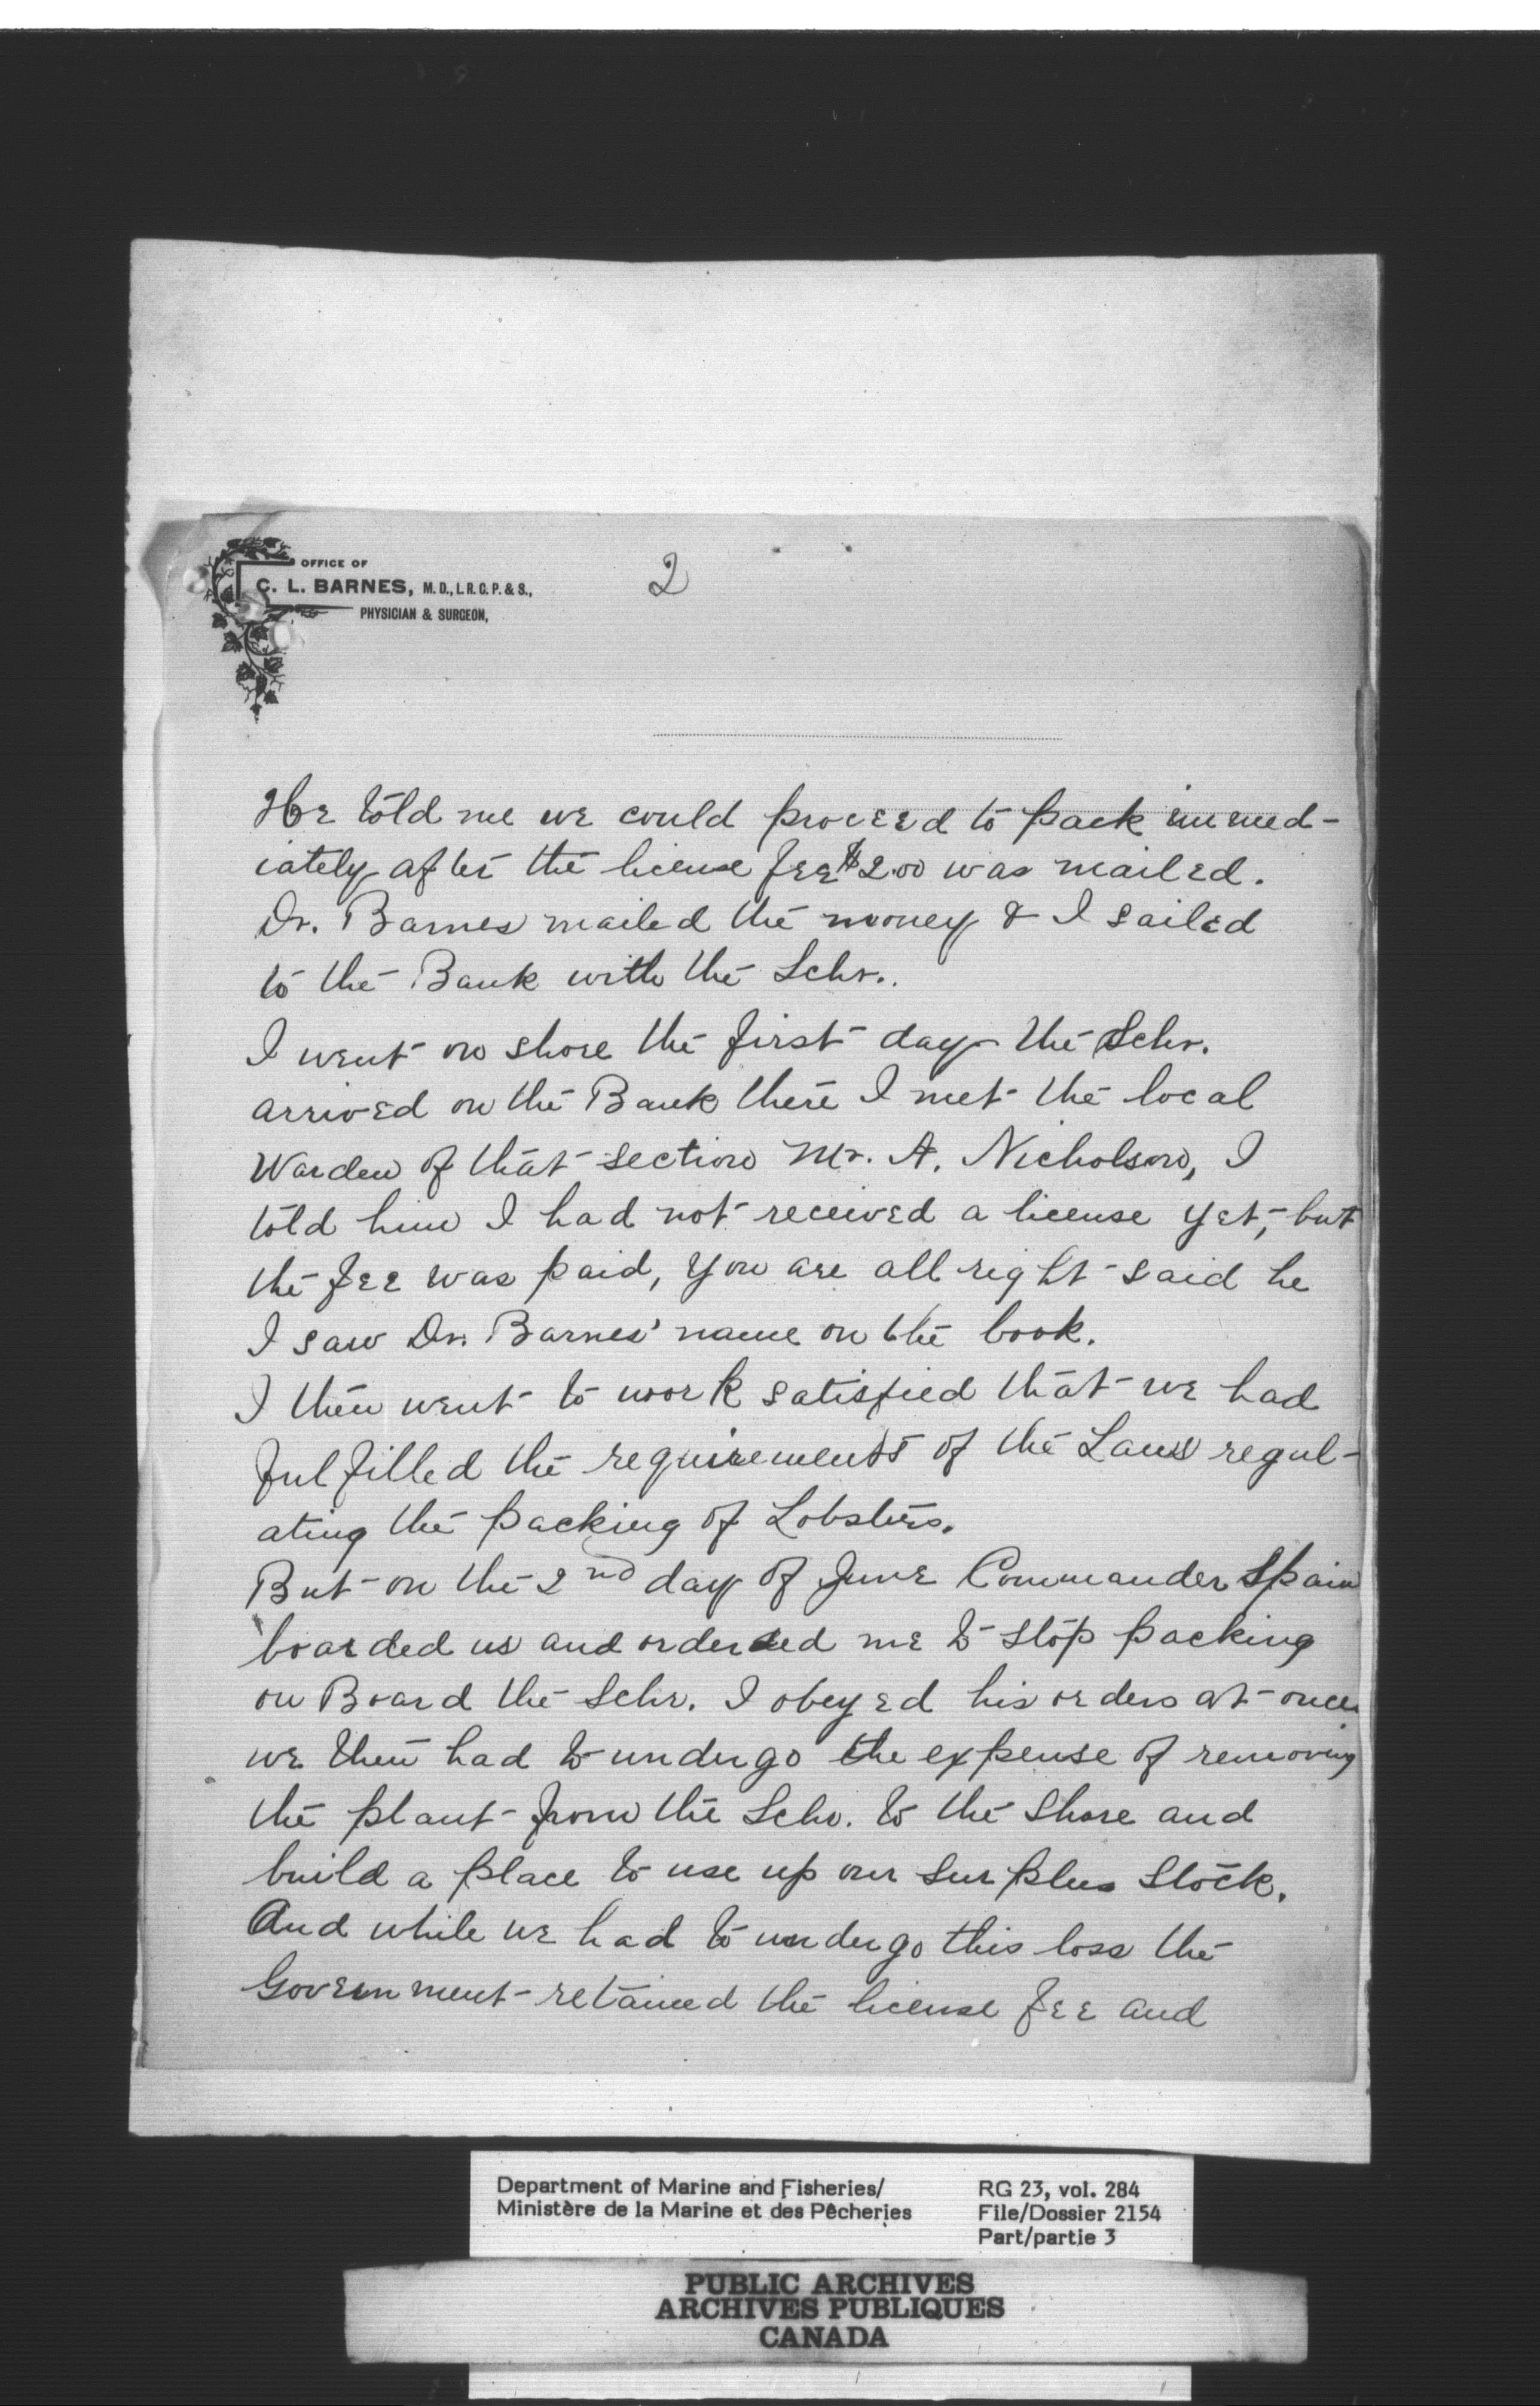 OFFICE OF
C. L. BARNES, M. D., L. R. C. P. & S.,
PHYSICIAN & SURGEON,
2
He told me we could proceed to pack immed-
iately after the license fee $2.00 was mailed.
Dr. Barnes mailed the money & I sailed
to the Bank with the Schr.
I went on shore the first day the Schr.
arrived on the Bank there I met the local
Warden of that section Mr. A. Nicholson, I
told him I had not received a license yet, but
the fee was paid, you are all right said he
I saw Dr. Barnes' name on the book.
I then went to work satisfied that we had
fulfilled the requirements of the Laws regul-
ating the packing of Lobsters.
But on the 2nd day of June Commander Spain
boarded us and ordered me to stop packing
on Board the Schr. I obeyed his orders at once
we then had to undergo the expense of removing
the plant from the Schr. to the shore and
build a place to use up our surplus stock.
And while we had to undergo this loss the
Government retained the license fee and
Department of Marine and Fisheries/
Ministère de la Marine et des Pêcheries
RG 23, vol. 284
File/Dossier 2154
Part/partie 3
PUBLIC ARCHIVES
ARCHIVES PUBLIQUES
CANADA